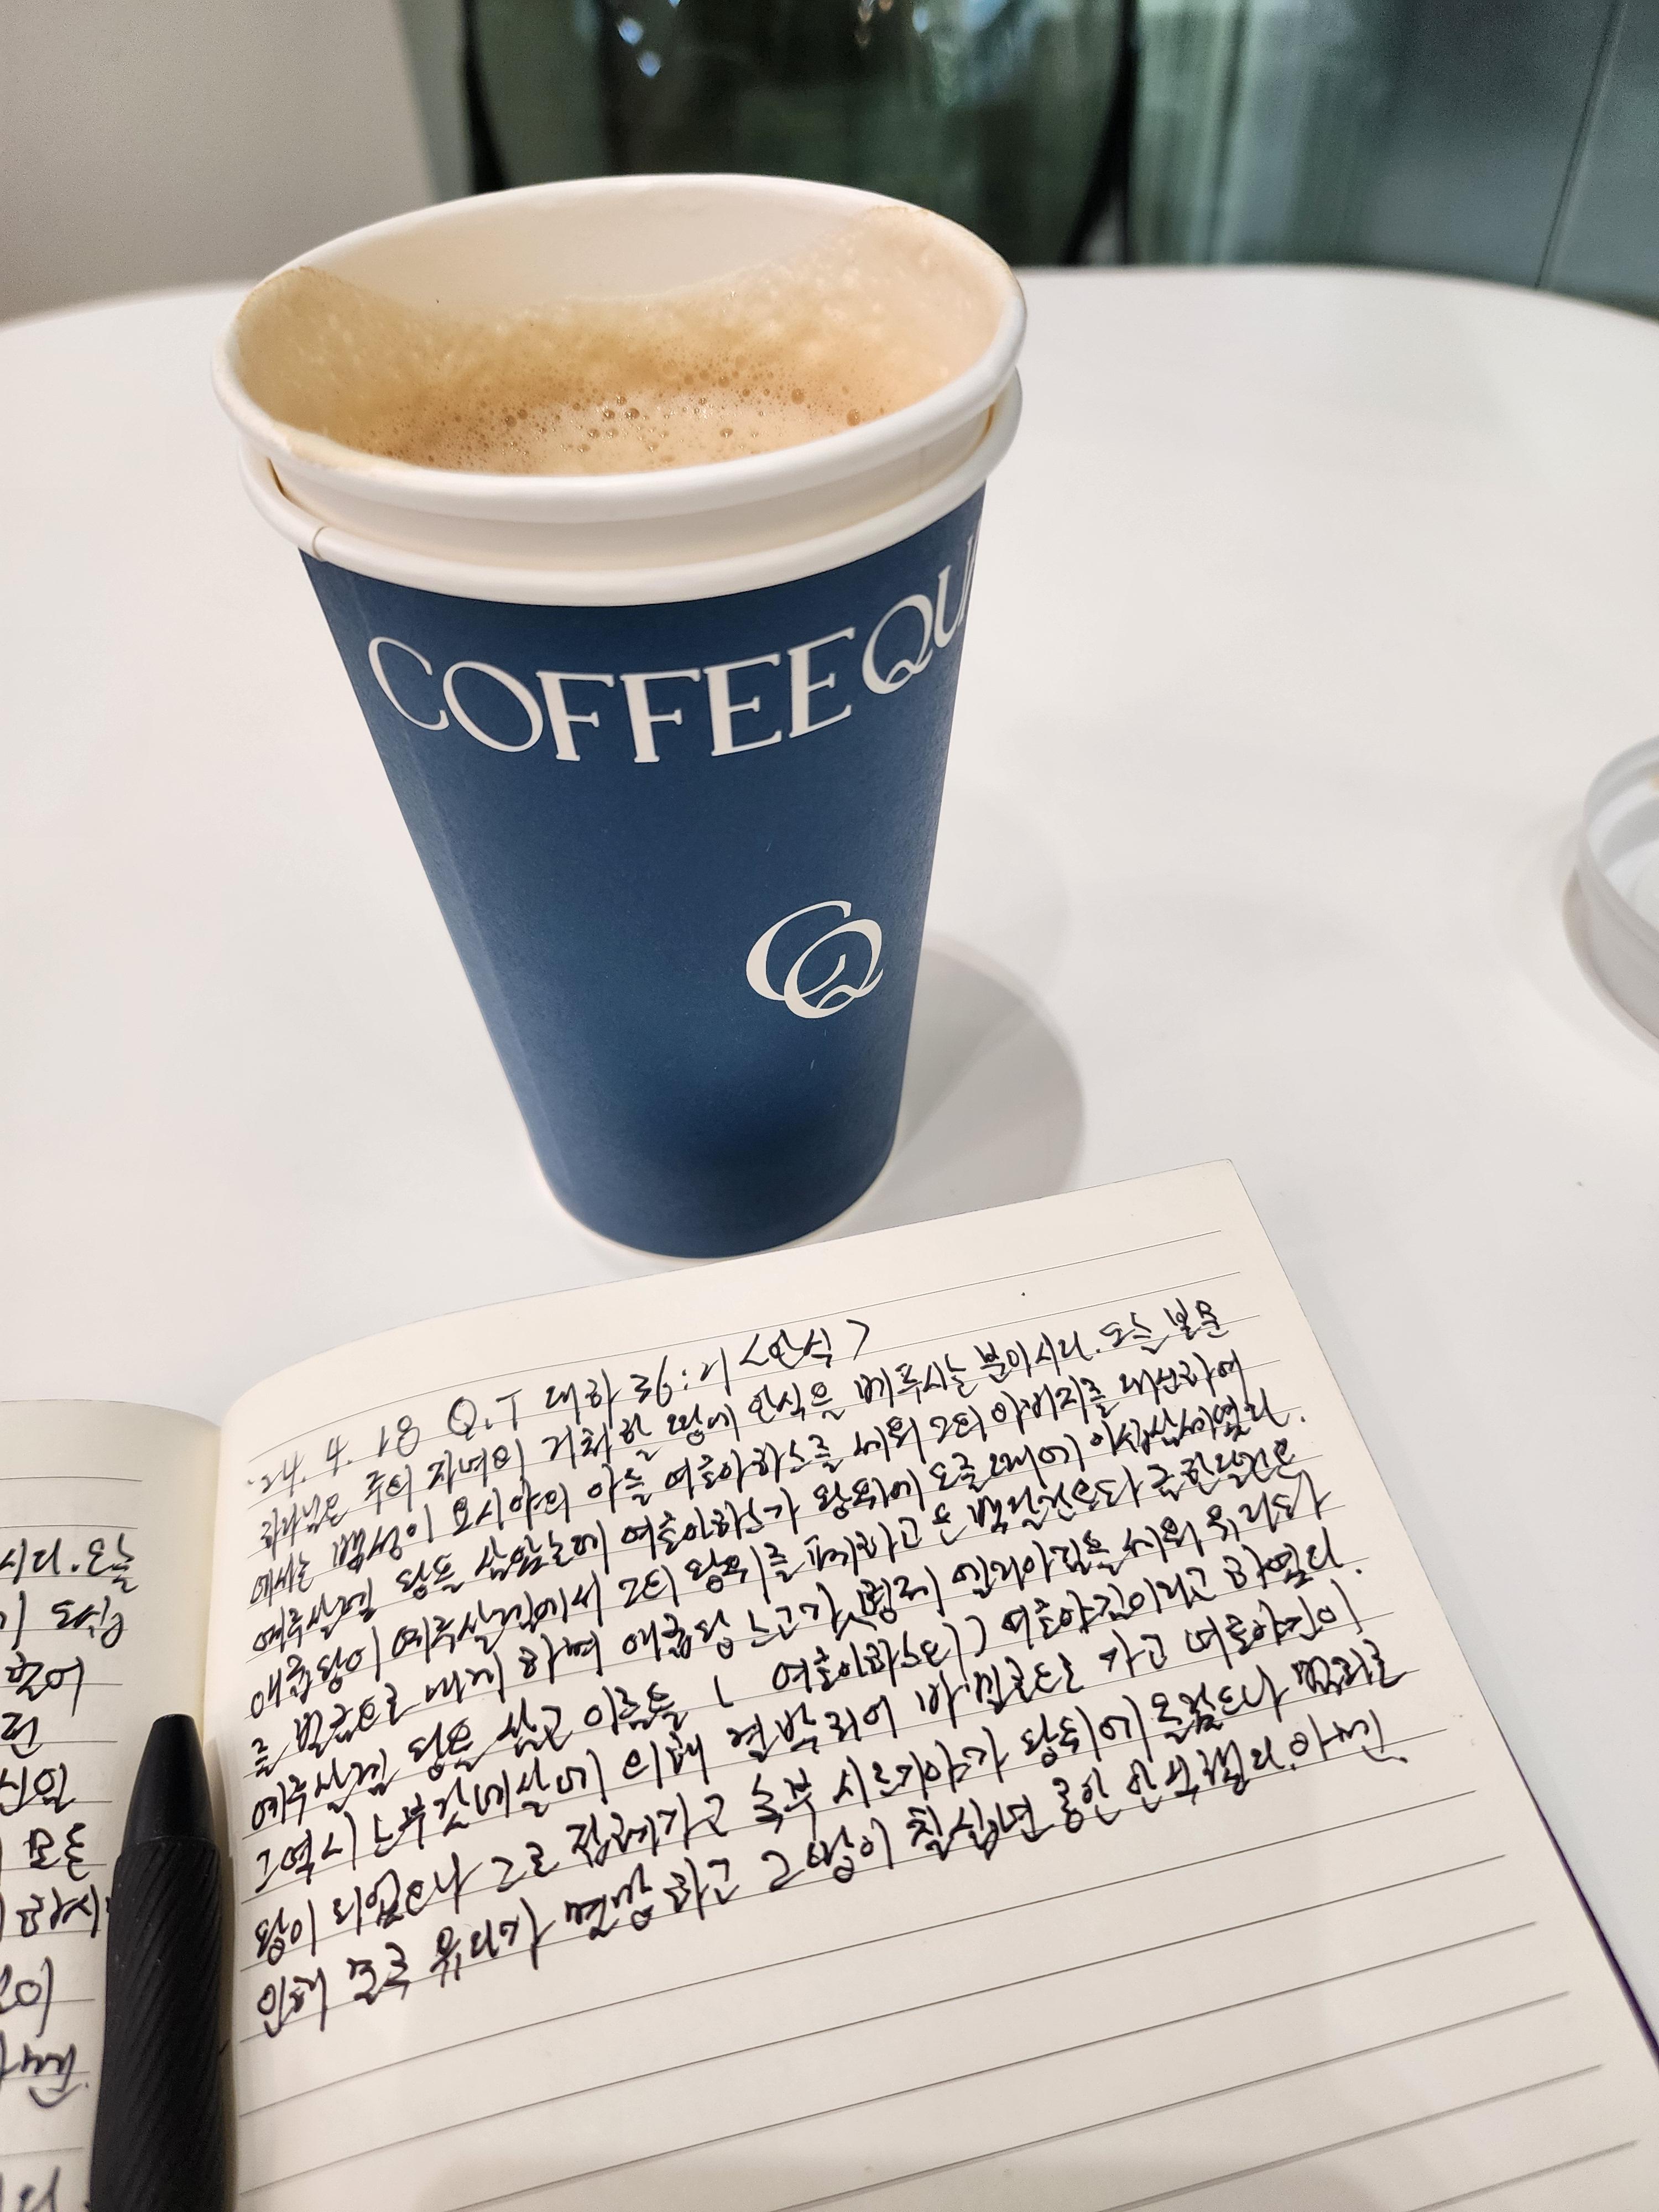 COFFEE QU
CQ
'24. 4. 18 Q.T 대하 36:21 <안식>
하나님은 주의 자녀의 거처할 땅에 안식을 베푸시는 분이시다. 오늘 본문
에서는 백성이 요시야의 아들 여호아하스를 세워 그의 아버지를 대신하여
예루살렘 왕으로 삼았는데 여호아하스가 왕위에 오를 때에 이십삼세였다.
애굽왕이 예루살렘에서 그의 왕위를 폐하고 은 백달란트와 금 한달란트
를 벌금으로 내게 하며 애굽왕 느고가 형제 엘리아김을 세워 유다와
예루살렘 왕으로 삼고 이름을 ( 여호아하스의 ) 여호야김이라고 하였다.
그 역시 느부갓네살에 의해 결박되어 바벨론으로 가고 여호야긴이
왕이 되었으나 그도 잡혀가고 숙부 시드기야가 왕위에 올랐으나 범죄로
인해 결국 유다가 멸망하고 그 땅이 칠십년 동안 안식했다. 아멘.
시다. 오늘
들어
린
신일
모든
하시
이
아멘.
다.